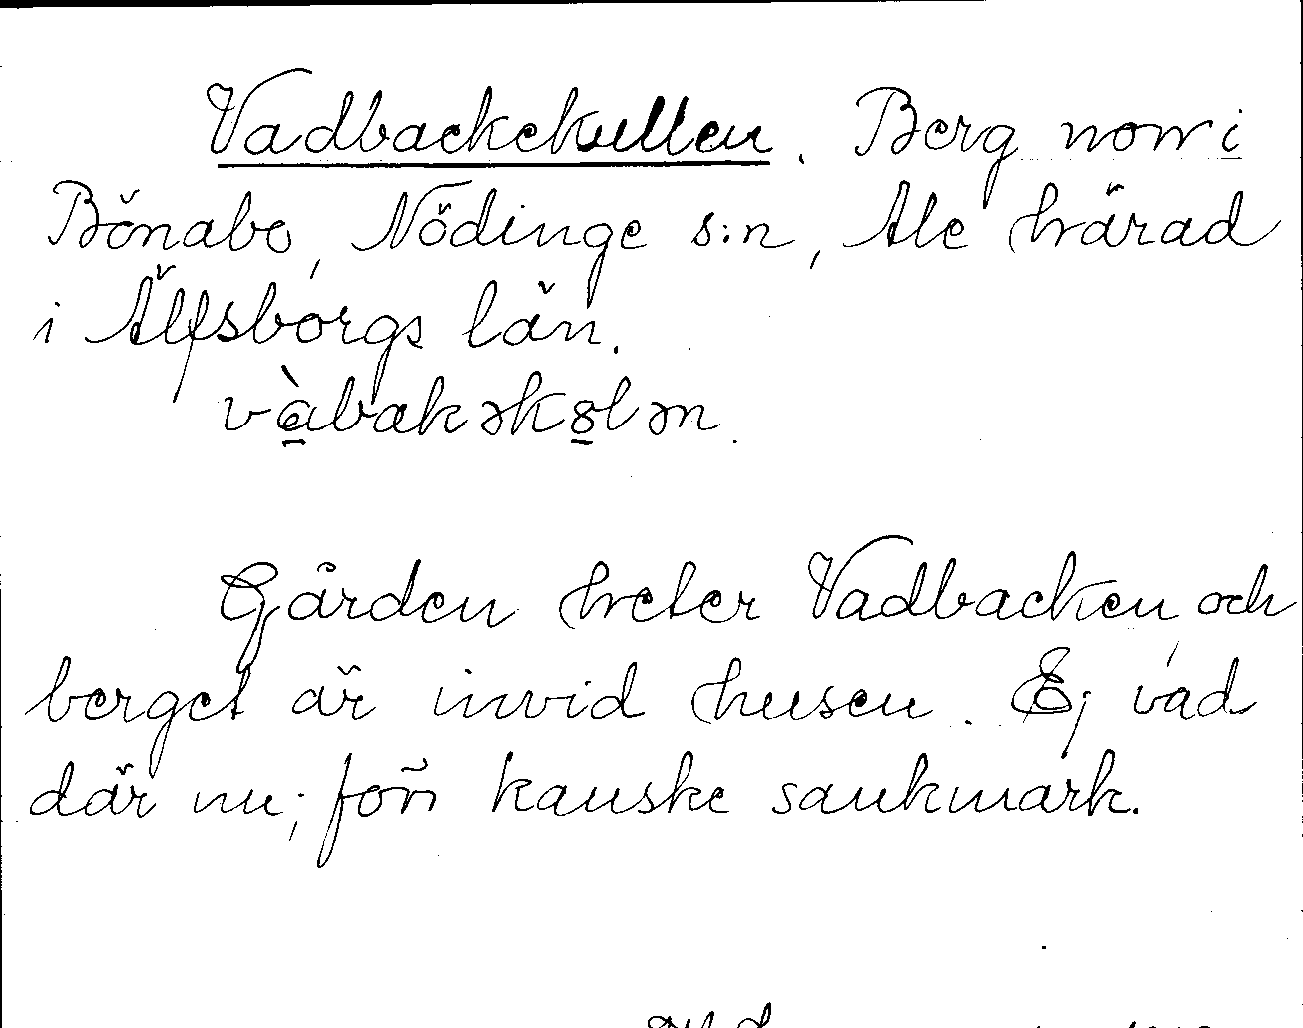 Vadbackekullen. Berg norr i
Bönabo, Nödinge s:n, Ale härad
i Älfsborgs län.
vàbakəkolən.
Gården heter Vadbacken, och
berget är invid husen. Ej vad
där nu; förr kanske sankmark.